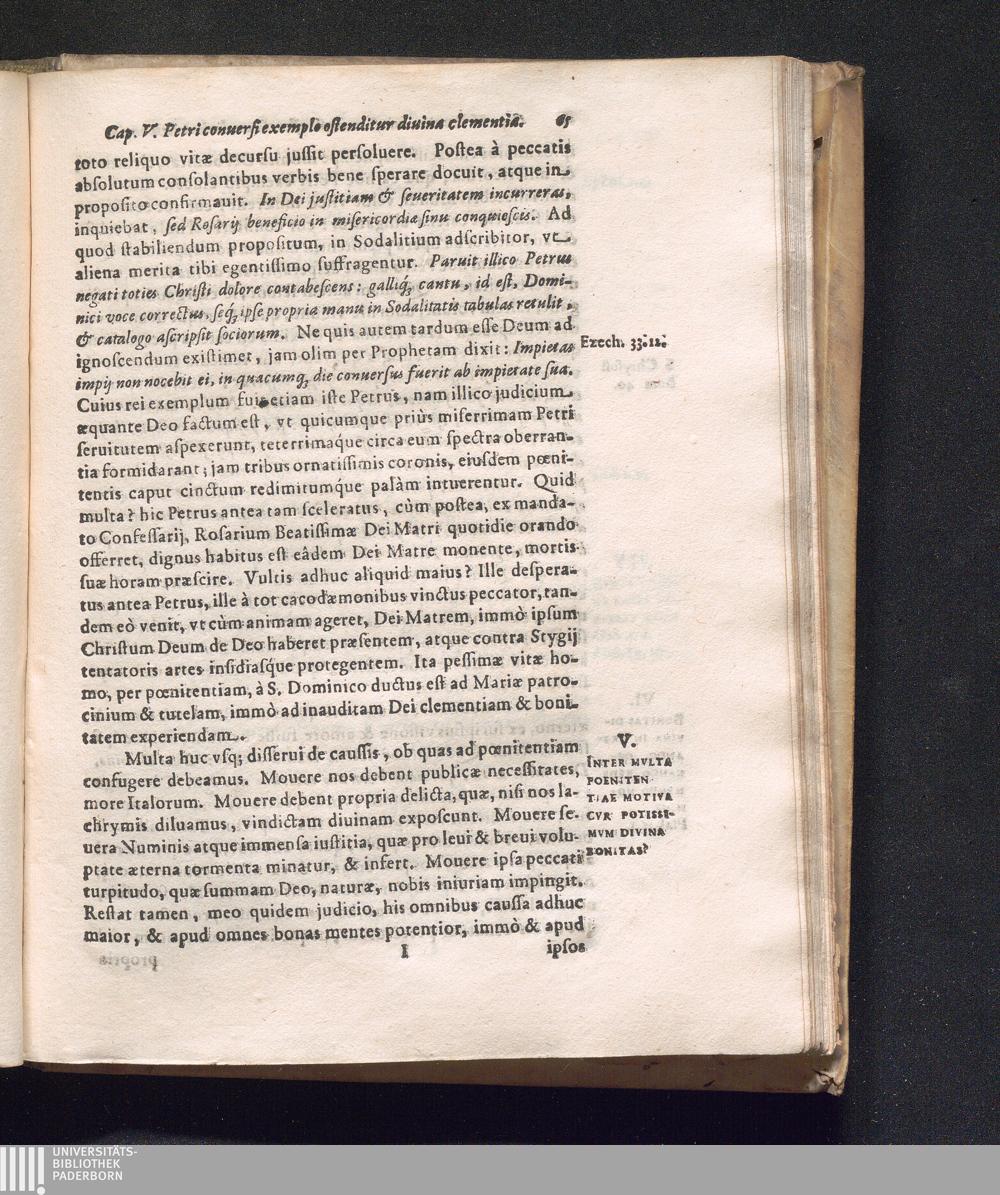 Cap. V. Petri conuersi exemplo ostenditur diuina clementia. 65
toto reliquo vitæ decursu jussit persoluere. Postea à peccatis
absolutum consolantibus verbis bene sperare docuit, atque in
proposito confirmauit. In Dei justitiam & seueritatem incurreras,
inquiebat, sed Rosarij beneficio in misericordiæ sinu conquiescis. Ad
quod stabiliendum propositum, in Sodalitium adscribitor, vt
aliena merita tibi egentissimo suffragentur. Paruit illico Petrus
negati toties Christi dolore contabescens: galliq́; cantu, id est, Domi-
nici voce correctus, seq́; ipse propria manu in Sodalitatis tabulas retulit,
& catalogo ascripsit sociorum. Ne quis autem tardum esse Deum ad
ignoscendum existimet, jam olim per Prophetam dixit: Impietas
Ezech. 33. 12.
impij non nocebit ei, in quacumq; die conuersus fuerit ab impietate sua.
Cuius rei exemplum fuit etiam iste Petrus, nam illico judicium
æquante Deo factum est, vt quicumque priùs miserrimam Petri
seruitutem aspexerunt, teterrimaque circa eum spectra oberran-
tia formidarant; jam tribus ornatissimis coronis, eiusdem pœni-
tentis caput cinctum redimitumq́ue palàm intuerentur. Quid
multa? hic Petrus antea tam sceleratus, cùm postea, ex manda-
to Confessarij, Rosarium Beatissimæ Dei Matri quotidie orando
offerret, dignus habitus est eâdem Dei Matre monente, mortis
suæ horam præscire. Vultis adhuc aliquid maius? Ille despera-
tus antea Petrus, ille à tot cacodæmonibus vinctus peccator, tan-
dem eò venit, vt cùm animam ageret, Dei Matrem, immò ipsum
Christum Deum de Deo haberet præsentem, atque contra Stygij
tentatoris artes insidiasq́ue protegentem. Ita pessimæ vitæ ho-
mo, per pœnitentiam, à S. Dominico ductus est ad Mariæ patro-
cinium & tutelam, immò ad inauditam Dei clementiam & boni-
tatem experiendam.
Multa huc vsq; disserui de caussis, ob quas ad pœnitentiam
confugere debeamus. Mouere nos debent publicæ necessitates,
more Italorum. Mouere debent propria delicta, quæ, nisi nos la-
chrymis diluamus, vindictam diuinam exposcunt. Mouere se-
uera Numinis atque immensa iustitia, quæ pro leui & breui volu-
ptate æterna tormenta minatur, & infert. Mouere ipsa peccati
turpitudo, quæ summam Deo, naturæ, nobis iniuriam impingit.
Restat tamen, meo quidem judicio, his omnibus caussa adhuc
maior, & apud omnes bonas mentes potentior, immò & apud
V.
INTER MVLTA
POENITEN-
TIAE MOTIVA
CVR POTISSI-
MVM DIVINA
BONITAS?
I
ipsos
UNIVERSITÄTS-
BIBLIOTHEK
PADERBORN